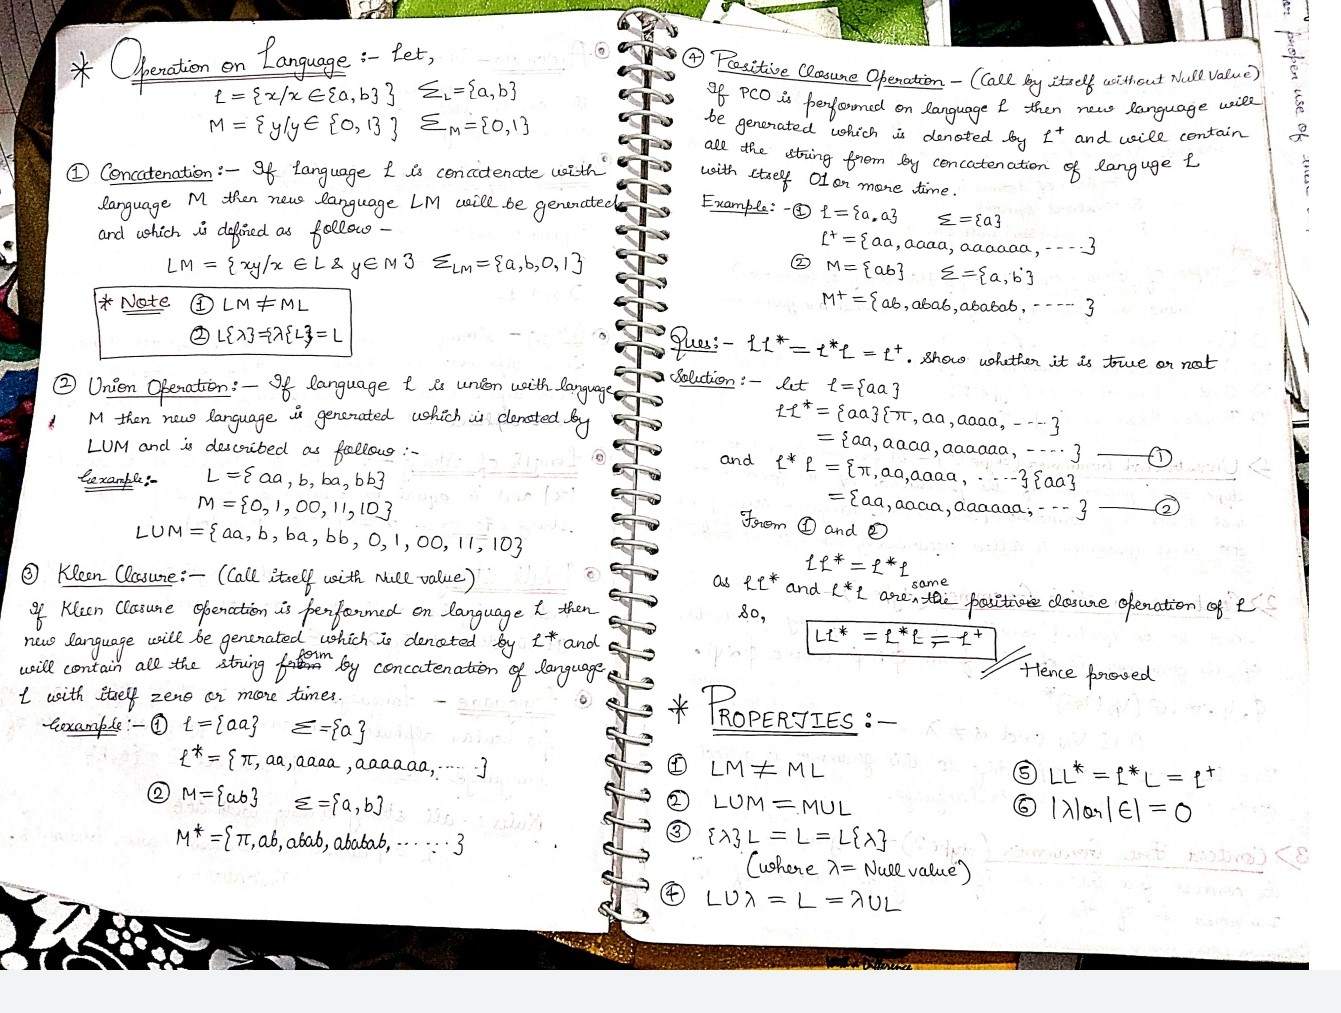 * Operation on Language :- Let,
L = {x/x ∈ {a,b} } Σ_L = {a,b}
M = { y/y ∈ {0,1} } Σ_M = {0,1}
① Concatenation :- If Language L is concatenate with
language M then new language LM will be generated
and which is defined as follow -
LM = { xy/x ∈ L & y ∈ M } Σ_LM = {a,b,0,1}
* Note ① LM ≠ ML
② L{λ} = {λ}{L} = L
② Union Operation :- If language L is union with language
M then new language is generated which is denoted by
LUM and is described as follow :-
Example :- L = { aa, b, ba, bb}
M = {0, 1, 00, 11, 10}
LUM = {aa, b, ba, bb, 0, 1, 00, 11, 10}
③ Kleen Closure :- (Call itself with Null value)
If Kleen Closure operation is performed on language L then
new language will be generated which is denoted by L* and
will contain all the string form by concatenation of language
L with itself zero or more times.
Example :- ① L = {aa} Σ = {a}
L* = { π, aa, aaaa, aaaaaa, ------}
② M = {ab} Σ = {a,b}
M* = { π, ab, abab, ababab, ------ }
④ Positive Closure Operation - (Call by itself without Null Value)
If PCO is performed on language L then new language will
be generated which is denoted by L⁺ and will contain
all the string from by concatenation of languge L
with itself 01 or more time.
Example :- ① L = {a,a} Σ = {a}
L⁺ = {aa, aaaa, aaaaaa, ----}
② M = {ab} Σ = {a,b}
M⁺ = {ab, abab, ababab, ----- }
Ques :- LL* = L*L = L⁺. Show whether it is true or not
Solution :- let L = {aa}
LL* = {aa}{π, aa, aaaa, ----}
= {aa, aaaa, aaaaaa, ---- } —— ①
and L* L = {π, aa, aaaa, -----}{aa}
= {aa, aaaa, aaaaaa, --- } —— ②
From ① and ②
LL* = L*L
as LL* and L*L are same the positive closure operation of L
So,
LL* = L*L = L⁺
Hence proved
* PROPERTIES :-
① LM ≠ ML
② LUM = MUL
③ {λ}L = L = L{λ}
(where λ = Null value)
④ LUλ = L = λUL
⑤ LL* = L*L = L⁺
⑥ |λ| or |∈| = 0